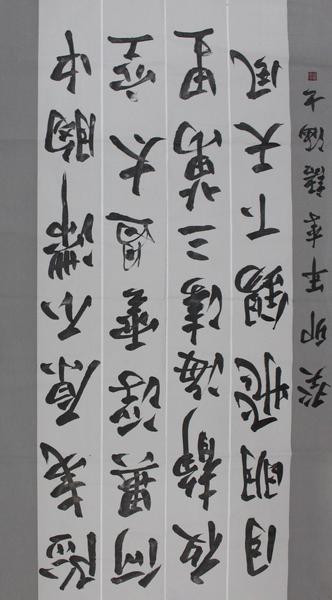 險夷原不滯胸中
何異浮雲過太空
夜靜海濤三萬里
月明飛錫下天風
癸卯年春